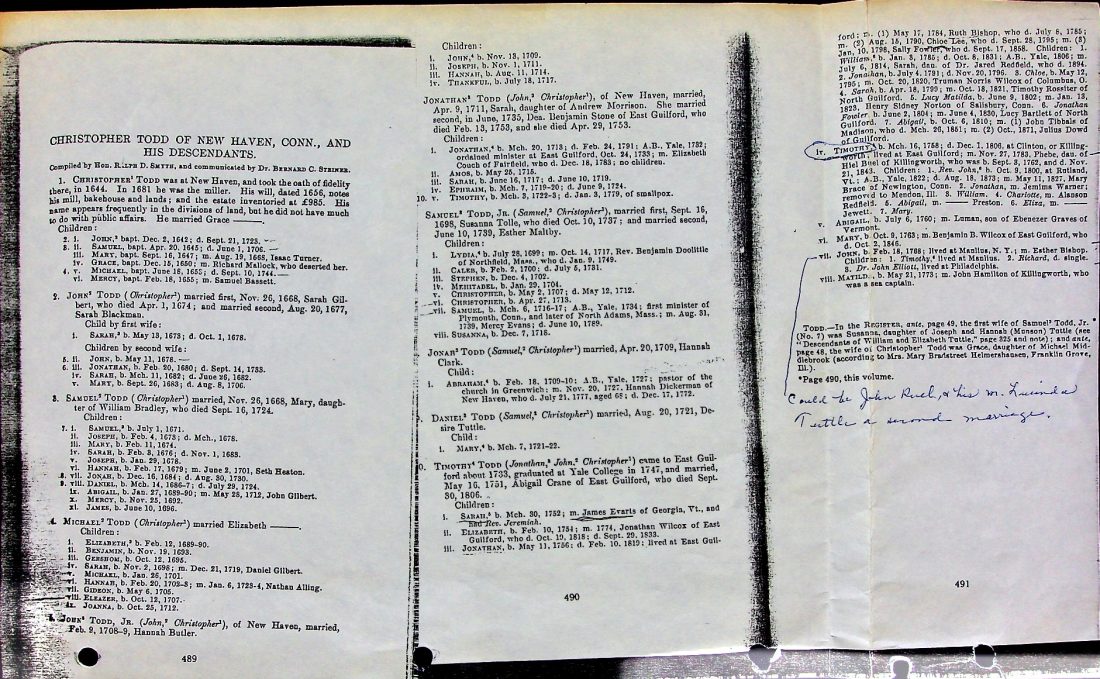 CHRISTOPHER TODD OF NEW HAVEN, CONN., AND
HIS DESCENDANTS.
Compiled by Hon. RALPH D. SMYTH, and communicated by Dr. BERNARD C. STEINER.
1. CHRISTOPHER¹ TODD was at New Haven, and took the oath of fidelity
there, in 1644. In 1681 he was the miller. His will, dated 1656, notes
his mill, bakehouse and lands; and the estate inventoried at £985. His
name appears frequently in the divisions of land, but he did not have much
to do with public affairs. He married Grace ———.
Children:
2. i. JOHN,² bapt. Dec. 2, 1642; d. Sept. 21, 1723.
3. ii. SAMUEL, bapt. Apr. 20, 1645; d. June 1, 1706.
iii. MARY, bapt. Sept. 16, 1647; m. Aug. 19, 1668, Isaac Turner.
iv. GRACE, bapt. Dec. 15, 1650; m. Richard Mallock, who deserted her.
4. v. MICHAEL, bapt. June 18, 1655; d. Sept. 10, 1744.
vi. MERCY, bapt. Feb. 18, 1655; m. Samuel Bassett.
2. JOHN² TODD (Christopher¹) married first, Nov. 26, 1668, Sarah Gil-
bert, who died Apr. 1, 1674; and married second, Aug. 20, 1677,
Sarah Blackman.
Child by first wife:
i. SARAH,³ b. May 13, 1673; d. Oct. 1, 1678.
Children by second wife:
5. ii. JOHN, b. May 11, 1678.
6. iii. JONATHAN, b. Feb. 20, 1680; d. Sept. 14, 1733.
iv. SARAH, b. Mch. 11, 1682; d. June 26, 1682.
v. MARY, b. Sept. 26, 1683; d. Aug. 8, 1706.
3. SAMUEL² TODD (Christopher¹) married, Nov. 26, 1668, Mary, daugh-
ter of William Bradley, who died Sept. 16, 1724.
Children:
7. i. SAMUEL,³ b. July 1, 1671.
ii. JOSEPH, b. Feb. 4, 1673; d. Mch., 1678.
iii. MARY, b. Feb. 11, 1674.
iv. SARAH, b. Feb. 3, 1676; d. Nov. 1, 1683.
v. JOSEPH, b. Jan. 29, 1678.
vi. HANNAH, b. Feb. 17, 1679; m. June 2, 1701, Seth Heaton.
8. vii. JONAH, b. Dec. 16, 1684; d. Aug. 30, 1730.
9. viii. DANIEL, b. Mch. 14, 1686-7; d. July 29, 1724.
ix. ABIGAIL, b. Jan. 27, 1689-90; m. May 28, 1712, John Gilbert.
x. MERCY, b. Nov. 25, 1692.
xi. JAMES, b. June 10, 1696.
4. MICHAEL² TODD (Christopher¹) married Elizabeth ———.
Children:
i. ELIZABETH,³ b. Feb. 12, 1689-90.
ii. BENJAMIN, b. Nov. 19, 1693.
iii. GERSHOM, b. Oct. 12, 1695.
iv. SARAH, b. Nov. 2, 1698; m. Dec. 21, 1719, Daniel Gilbert.
v. MICHAEL, b. Jan. 26, 1701.
vi. HANNAH, b. Feb. 20, 1702-3; m. Jan. 6, 1723-4, Nathan Alling.
vii. GIDEON, b. May 6, 1705.
viii. ELEAZER, b. Oct. 12, 1707.
ix. JOANNA, b. Oct. 25, 1712.
5. JOHN³ TODD, JR. (John,² Christopher¹), of New Haven, married,
Feb. 9, 1708-9, Hannah Butler.
489
Children:
i. JOHN,⁴ b. Nov. 13, 1709.
ii. JOSEPH, b. Nov. 1, 1711.
iii. HANNAH, b. Aug. 11, 1714.
iv. THANKFUL, b. July 18, 1717.
JONATHAN³ TODD (John,² Christopher¹), of New Haven, married,
Apr. 9, 1711, Sarah, daughter of Andrew Morrison. She married
second, in June, 1735, Dea. Benjamin Stone of East Guilford, who
died Feb. 13, 1753, and she died Apr. 29, 1753.
Children:
i. JONATHAN,⁴ b. Mch. 20, 1713; d. Feb. 24, 1791; A.B., Yale, 1732;
ordained minister at East Guilford, Oct. 24, 1733; m. Elizabeth
Couch of Fairfield, who d. Dec. 18, 1783; no children.
ii. AMOS, b. May 25, 1715.
iii. SARAH, b. June 16, 1717; d. June 10, 1719.
iv. EPHRAIM, b. Mch. 7, 1719-20; d. June 9, 1724.
10. v. TIMOTHY, b. Mch. 3, 1722-3; d. Jan. 3, 1779, of smallpox.
SAMUEL³ TODD, JR. (Samuel,² Christopher¹), married first, Sept. 16,
1698, Susanna Tolle, who died Oct. 10, 1737; and married second,
June 10, 1739, Esther Maltby.
Children:
i. LYDIA,⁴ b. July 28, 1699; m. Oct. 14, 1717, Rev. Benjamin Doolittle
of Northfield, Mass., who d. Jan. 9, 1749.
ii. CALEB, b. Feb. 2, 1700; d. July 5, 1731.
iii. STEPHEN, b. Dec. 4, 1702.
iv. MEHITABEL, b. Jan. 29, 1704.
v. CHRISTOPHER, b. May 2, 1707; d. May 12, 1712.
vi. CHRISTOPHER, b. Apr. 27, 1713.
vii. SAMUEL, b. Mch. 6, 1716-17; A.B., Yale, 1734; first minister of
Plymouth, Conn., and later of North Adams, Mass.; m. Aug. 31,
1739, Mercy Evans; d. June 10, 1789.
viii. SUSANNA, b. Dec. 7, 1718.
JONAH³ TODD (Samuel,² Christopher¹) married, Apr. 20, 1709, Hannah
Clark.
Child:
i. ABRAHAM,⁴ b. Feb. 18, 1709-10; A.B., Yale, 1727; pastor of the
church in Greenwich; m. Nov. 20, 1727, Hannah Dickerman of
New Haven, who d. July 21, 1777, aged 68; d. Dec. 17, 1772.
DANIEL³ TODD (Samuel,² Christopher¹) married, Aug. 20, 1721, De-
sire Tuttle.
Child:
i. MARY,⁴ b. Mch. 7, 1721-22.
0. TIMOTHY⁴ TODD (Jonathan,³ John,² Christopher¹) came to East Guil-
ford about 1733, graduated at Yale College in 1747, and married,
May 16, 1751, Abigail Crane of East Guilford, who died Sept.
30, 1806.
Children:
i. SARAH,⁵ b. Mch. 30, 1752; m. James Evarts of Georgia, Vt., and
had Rev. Jeremiah.
ii. ELIZABETH, b. Feb. 10, 1754; m. 1774, Jonathan Wilcox of East
Guilford, who d. Oct. 19, 1818; d. Sept. 29, 1833.
iii. JONATHAN, b. May 11, 1756; d. Feb. 10, 1819; lived at East Guil-
490
ford; m. (1) May 17, 1784, Ruth Bishop, who d. July 8, 1785;
m. (2) Aug. 15, 1790, Chloe Lee, who d. Sept. 28, 1795; m. (3)
Jan. 10, 1798, Sally Fowler, who d. Sept. 17, 1858. Children: 1.
William,⁶ b. Jan. 3, 1785; d. Oct. 8, 1831; A.B., Yale, 1806; m.
July 6, 1814, Sarah, dau. of Dr. Jared Redfield, who d. 1894.
2. Jonathan, b. July 4, 1791; d. Nov. 20, 1796. 3. Chloe, b. May 12,
1795; m. Oct. 20, 1820, Truman Norris Wilcox of Columbus, O.
4. Sarah, b. Apr. 18, 1799; m. Oct. 18, 1821, Timothy Rossiter of
North Guilford. 5. Lucy Matilda, b. June 9, 1802; m. Jan. 13,
1823, Henry Sidney Norton of Salisbury, Conn. 6. Jonathan
Fowler, b. June 2, 1804; m. June 4, 1830, Lucy Bartlett of North
Guilford. 7. Abigail, b. Oct. 6, 1810; m. (1) John Tibbals of
Madison, who d. Mch. 26, 1861; m. (2) Oct., 1871, Julius Dowd
of Guilford.
iv. TIMOTHY, b. Mch. 16, 1758; d. Dec. 1, 1806, at Clinton, or Killing-
worth, lived at East Guilford; m. Nov. 27, 1783, Phebe, dau. of
Hiel Buel of Killingworth, who was b. Sept. 3, 1762, and d. Nov.
21, 1843. Children: 1. Rev. John,⁶ b. Oct. 9, 1800, at Rutland,
Vt.; A.B., Yale, 1822; d. Aug. 18, 1873; m. May 11, 1827, Mary
Brace of Newington, Conn. 2. Jonathan, m. Jemima Warner;
removed to Mendon, Ill. 3. William. 4. Charlotte, m. Alanson
Redfield. 5. Abigail, m. ——— Preston. 6. Eliza, m. ———
Jewett. 7. Mary.
v. ABIGAIL, b. July 6, 1760; m. Luman, son of Ebenezer Graves of
Vermont.
vi. MARY, b. Oct. 9, 1763; m. Benjamin B. Wilcox of East Guilford, who
d. Oct. 2, 1846.
vii. JOHN, b. Feb. 18, 1768; lived at Manlius, N. Y.; m. Esther Bishop.
Children: 1. Timothy,⁶ lived at Manlius. 2. Richard, d. single.
3. Dr. John Elliott, lived at Philadelphia.
viii. MATILDA, b. May 21, 1773; m. John Hamilton of Killingworth, who
was a sea captain.
TODD.—In the REGISTER, ante, page 49, the first wife of Samuel³ Todd, Jr.
(No. 7) was Susanna, daughter of Joseph and Hannah (Munson) Tuttle (see
"Descendants of William and Elizabeth Tuttle," page 325 and note); and ante,
page 48, the wife of Christopher¹ Todd was Grace, daughter of Michael Mid-
dlebrook (according to Mrs. Mary Bradstreet Helmershausen, Franklin Grove,
Ill.).
*Page 490, this volume.
Could be John Ruel, & his m. Lucinda
Tuttle a second marriage.
491